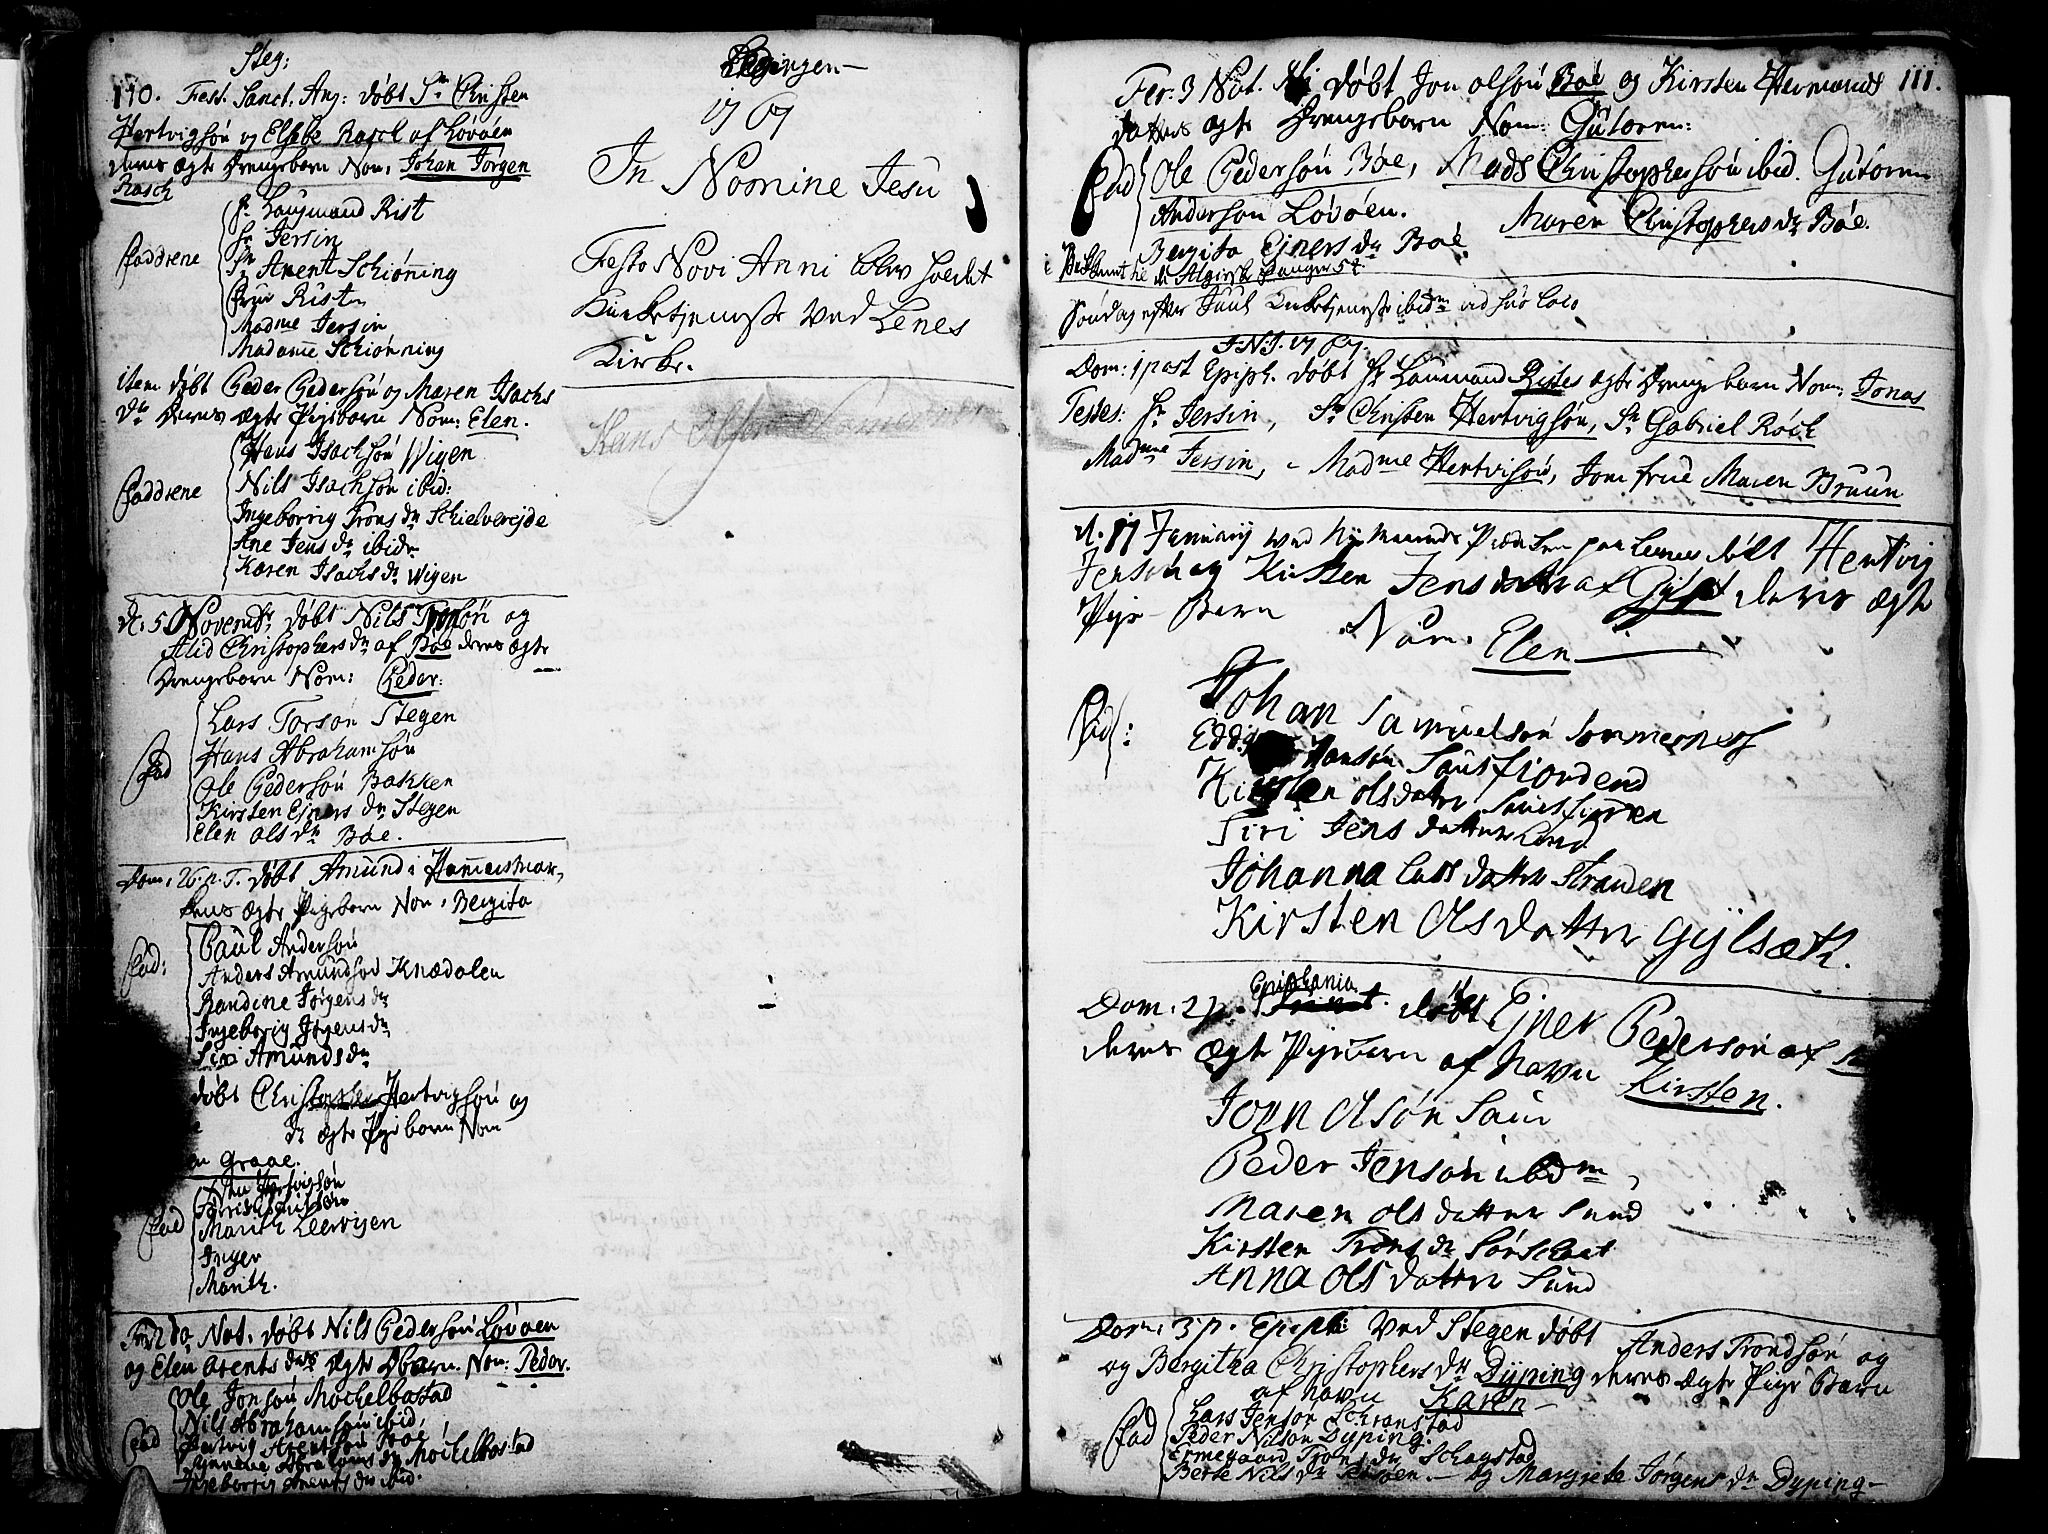 Steg:
110. Fest. Sanct. Ang: døbt Sr Christen
Hertvigsøn og Elsebe Rasch af Løvøen
deres ægte Drengebarn Nom: Johan Jørgen
Rasch
Faddrene
Hr Laugmand Rist
Hr Jersin
Sr Arent Schiønning
Frue Rist
Madme Jersin
Madame Schiønning
item døbt Peder Pedersøn og Maren Isachs
dr deres ægte Pigebarn Nom: Elen.
Faddrene
Hans Isachsøn Wigen
Nils Isachsøn ibid:
Ingeborrig Trons dr Schielvereide
Ane Jens dr ibid
Karen Isachs dr Wigen
d. 5 Novembr. døbt Nils og
Alid Christophers dr af Bøe deres ægte
Drengebarn Nom: Peder.
Fad
Lars Torsøn Stegen
Hans Abrahamsøn
Ole Pedersøn Bakken
Kirsten Ejners dr Stegen
Elen Ols dr Bøe.
Dom. 26. p. T. døbt Amund i Hammersmar,
kens ægte Pigebarn Nom. Bergita
Fad:
Paul Andersøn
Anders Amundsøn Knædalen
Randine Jørgens dr
Ingeborig Jørgens dr
Siri Amunds dr
døbt Christopher Hertvigsøn og
dr ægte Pigebarn Nom
Graae.
Fad
Marith Leervigen
Inger
Marith.
2da Nat. døbt Nils Pedersøn Løvøen
og Elen Arents datr ægte Dbarn. Nom: Peder.
Fad
Ole Jonsøn Mochelbostad
Nils Abrahamsøn ibid.
Hertvig Arentsøn Bøe
Synneve Abrahams dr Mochelbostad
Ingeborrig Arents dr ibid.
Pedingen
1767
In Nomine Jesu
Festo Novi Anni blev holdt
Kirketjeneste ved Lenes
Kirke.
Hans Olsøn
111.
Fer. 3 Nat. døbt Jon Olsøn Bøe og Kirsten Hermands
datters ægte Drengebarn Nom: Gutorm:
Fad
Ole Pedersøn Bøe, Mads Christophersøn ibid. Gutorm
Andersøn Løvøen. Maren Christophers dr Bøe.
Bergita Ejners dr Bøe
Søndag efter Juul Kirketjeneste ibidm ved
I.N.J. 1767.
Dom: 1 post Epiph. døbt Hr Laumand Ristes ægte Drengebarn Nom: Jonas
Testes: Hr Jersin, Sr Christen Hertvigsøn, Sr Gabriel Röck
Madme Jersin, Madme Hertvisøn, Jomfrue Maren Bruun
d. 17 Januarij ved paa Lenes døbt Hertvig
Jensøn og Kirsten Jensdatter af Gylset deres ægte
Pige-Barn Nom. Elen
Fad:
Johan Samuelsøn Sommernes
Hansøn Saursfiordend
Kirsten Olsdatter Saursfiorden
Siri Jens datter Lund
Johanna Lars datter Stranden
Kirsten Olsdatter Gylsæth.
Epiphania
Dom: 2 p. Trinit. døbt Ejner Pedersøn af
deres ægte Pigebarn af Navn Kirsten.
Joen Olsøn Saur
Peder Jensøn ibidm
Maren Olsdatter Sund
Kirsten Trons dr Sørschaat
Anna Olsdatter Sund
Dom. 3 p. Epiph: ved Stegen døbt Anders Trondsøn og
og Bergitha Christophers dr Dyping deres ægte Pige Barn
af Navn Karen
Fad
Lars Jensøn Schranstad
Peder Nilsøn Dyping.
Ermegaard Trons dr Schagstad
Berte Nils dr og Margrete Jørgens dr Dyping